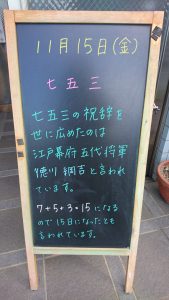 11月15日(金)
七五三
七五三の祝辞を
世に広めたのは
江戸幕府五代将軍
徳川 綱吉と言われ
ています。
7+5+3=15になる
ので15日になったとも
言われています。